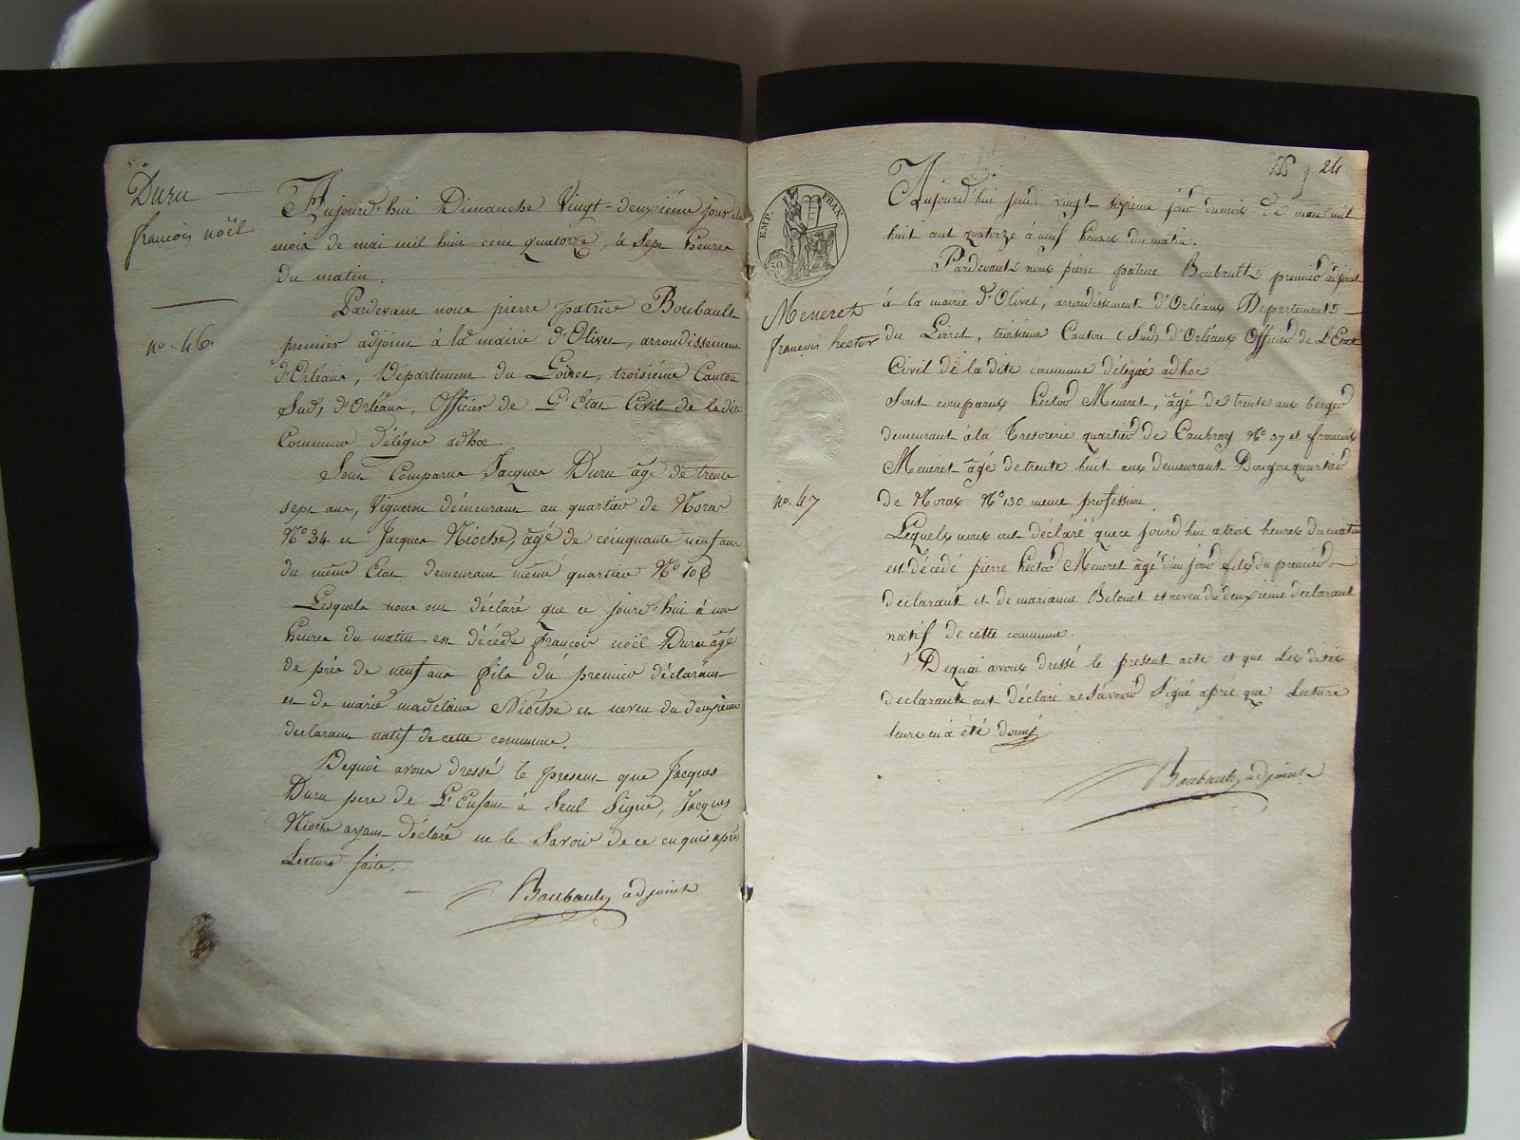 Duru
françois noël
n° 46.
Aujourd'hui Dimanche Vingt-deuxième jour du
mois de mai mil huit cent quatorze, à Sept heures
du matin.
Pardevant nous pierre patrice Boubault
premier adjoint à la mairie d'Olivet, arrondissement
d'Orléans, Département du Loiret, troisième Canton
Sud, d'Orléans, Officier de L'Etat Civil de la dite
Commune délégué adhoc
Sont Comparus Jacques Duru âgé de trente
sept ans, Vigneron démeurant au quartier de Noras
N° 34 et Jacques Nioche, âgé de cinquante neuf ans
du même Etat demeurant même quartier N° 108
Lesquels nous ont déclaré que ce jourd'hui à
heures du matin est décédé françois noël Duru âgé
de près de neuf ans fils du premier déclarant
et de marie madelaine Nioche et neveu du deuxième
declarant natif de cette commune.
Dequoi avons dressé le present que Jacques
Duru pere de L'Enfant à Seul Signé, Jacques
Nioche ayant déclaré ne le Savoir de ce enquis après
Lecture faite.
Boubault adjoint
24
EMP. FRAN
Meneret
françois hector
n° 47
Aujourd'hui jeudi vingt-sixieme jour dumois de mai mil
huit cent quatorze à neuf heures du matin.
Pardevant nous pierre patrice Boubault premier adjoint
à la mairie d'Olivet, arrondissement d'Orléans Departement
du Loiret, troisieme Canton (Sud) d'Orléans Officier de L'Etat
Civil de la dite commune délégué adhoc
Sont comparus hector Meneret, âgé de trente ans berger
demeurant à la Tresorerie quartier de Caubray N° 37 et françois
Meneret âgé de trente huit ans demeurant quartier
de Noras N° 130 meme profession.
Lequels nous ont déclaré quece jourd'hui a trois heures dumatin
est décédé pierre hector Meneret âgé d'un jour fils du premier
declarant et de marianne Belouet et neveu du deuxieme declarant
natif de cette commune.
Dequoi avons dressé le present acte et que les dits
declarants ont déclaré ne Savoir Signé après que Lecture
leurs en à été donné
Boubault adjoint